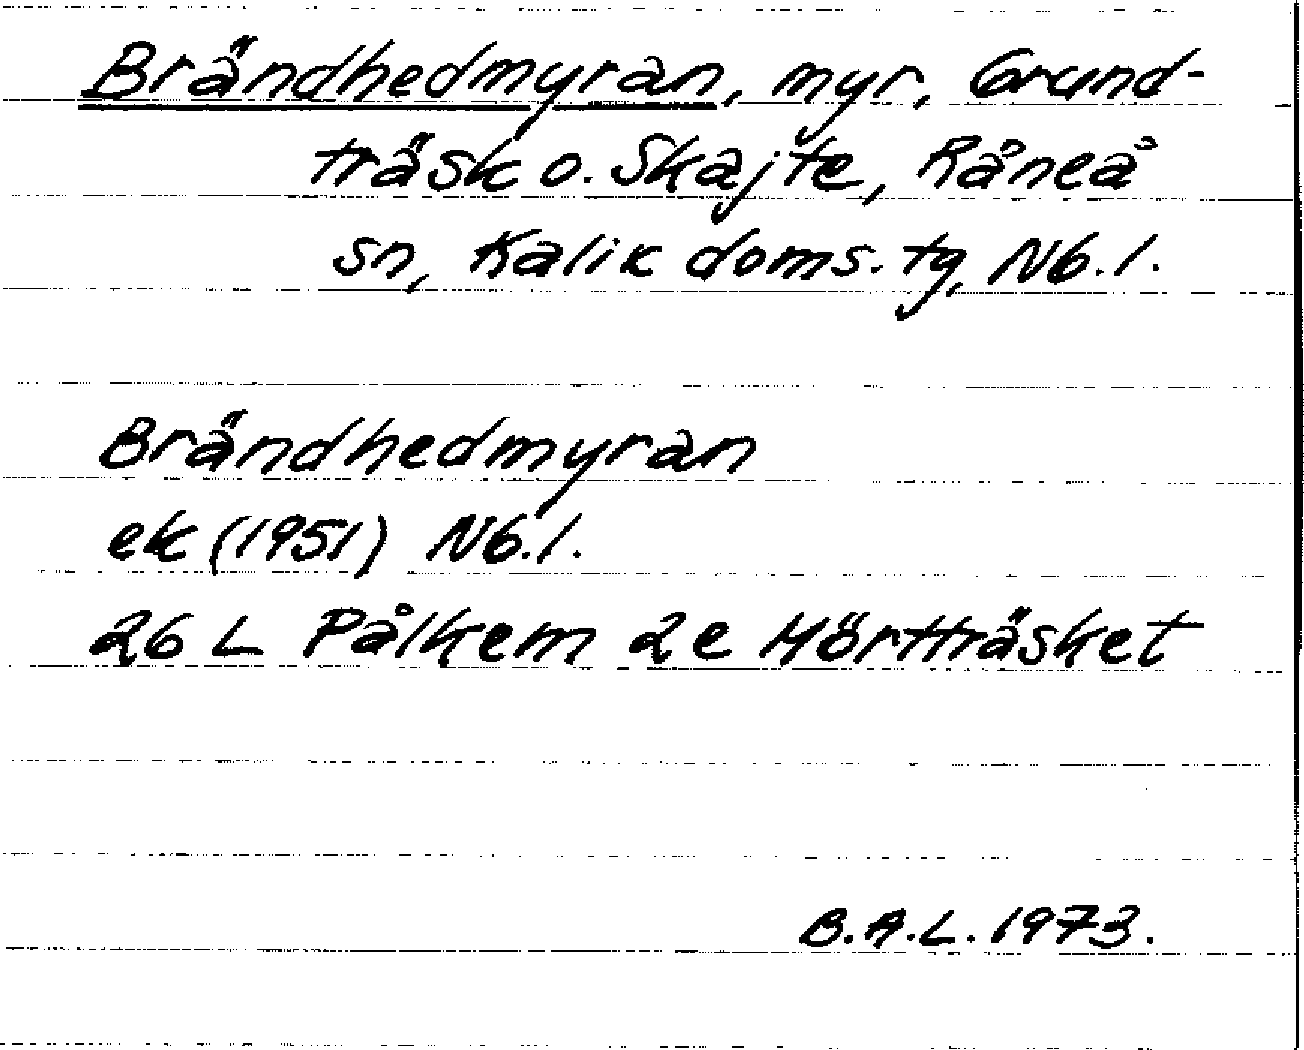 Brändhedmyran, myr, Grund-
träsk o. Skajte, Råneå
sn, Kalix doms. tg, Nb. l.
Brändhedmyran
ek (1951) Nb. l.
26 L Pålkem 2e Mörtträsket
B.A.L. 1973.